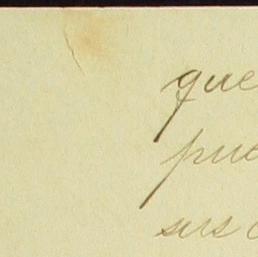 que
pue
sus